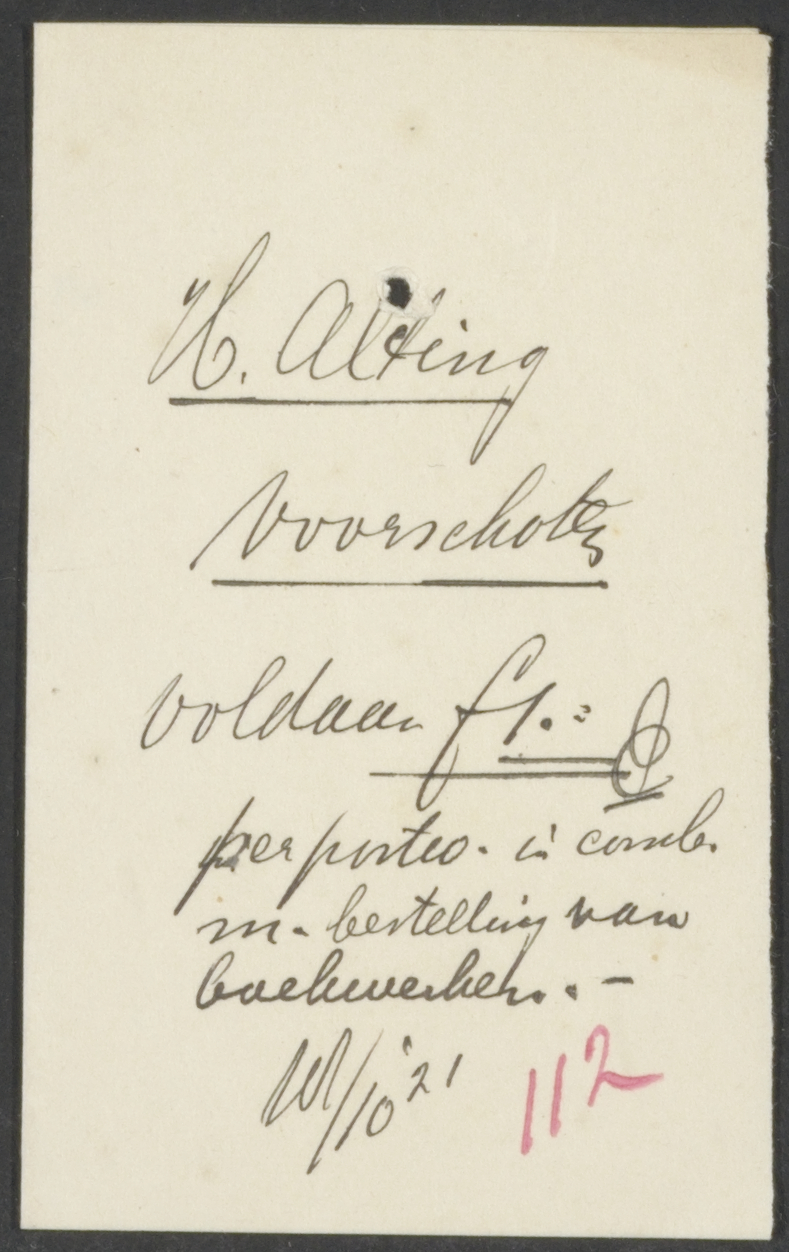 H. Alting
voorschoten
voldaan f 1.=
per postw. in comb.
m. bestelling van
boekwerken. . –
/10 '21
112